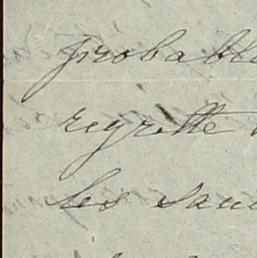 probable
regrette
les sau